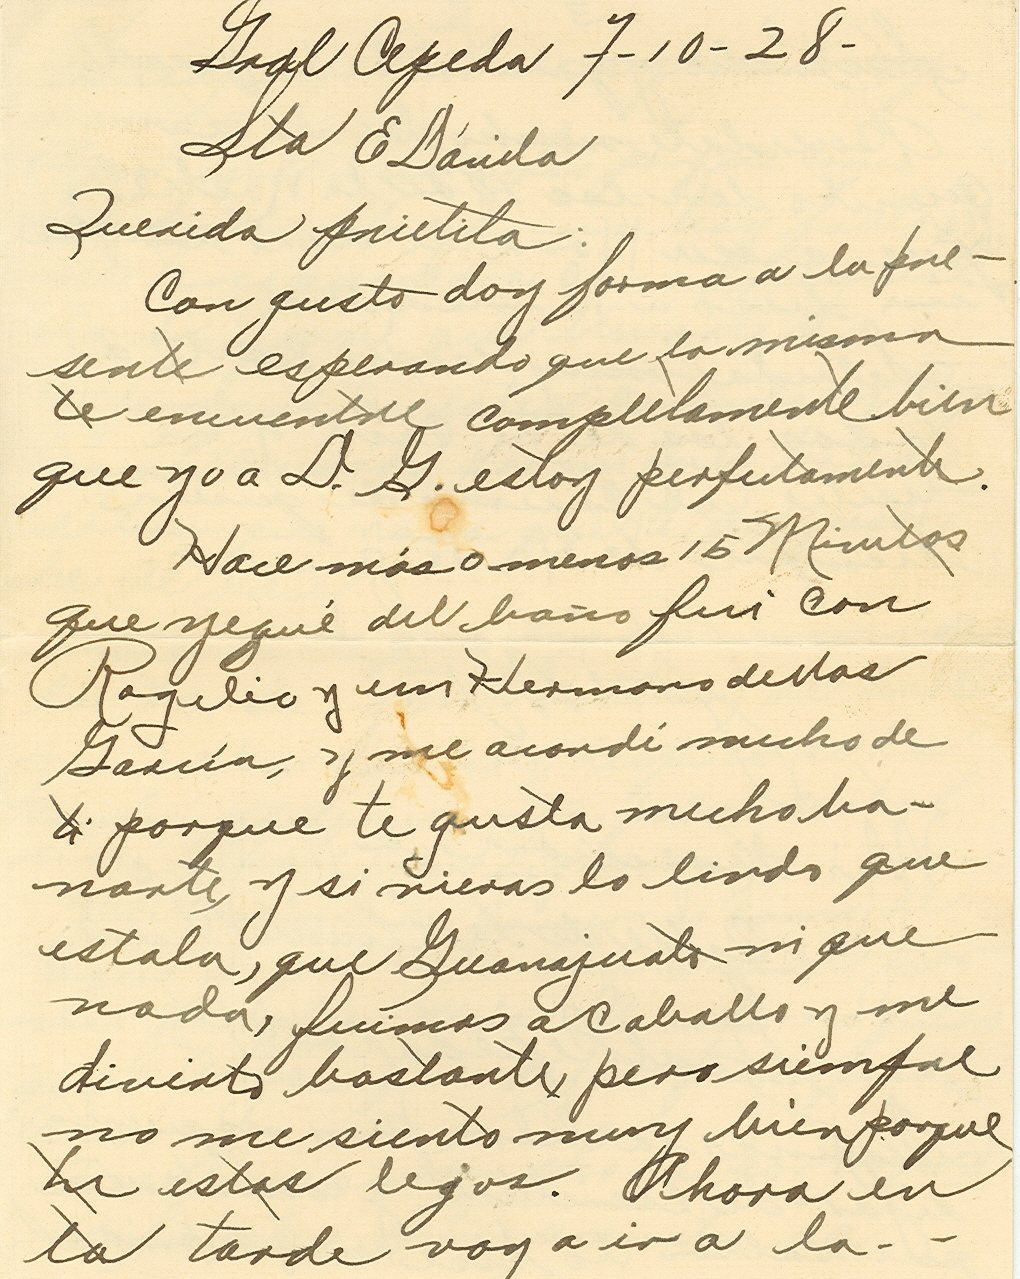 Gral Cepeda 7-10-28-
Sta E Dávila
Querida prietita:
Con gusto doy forma a la pre-
sente esperando que la misma
te encuentre completamente bien
que yo a D. G. estoy perfectamente.
Hace más o menos 15 Minutos
que yegué del baño fui con
Rogelio y un Hermano de las
García, y me acordé mucho de
ti porque te gusta mucho ba-
narte, y si vieras lo lindo que
estaba, que Guanajuato ni que
nada, fuimos a caballo y me
divierto bastante, pero siempre
no me siento muy bien porque
tu estas lejos. Ahora en
la tarde voy a ir a la--